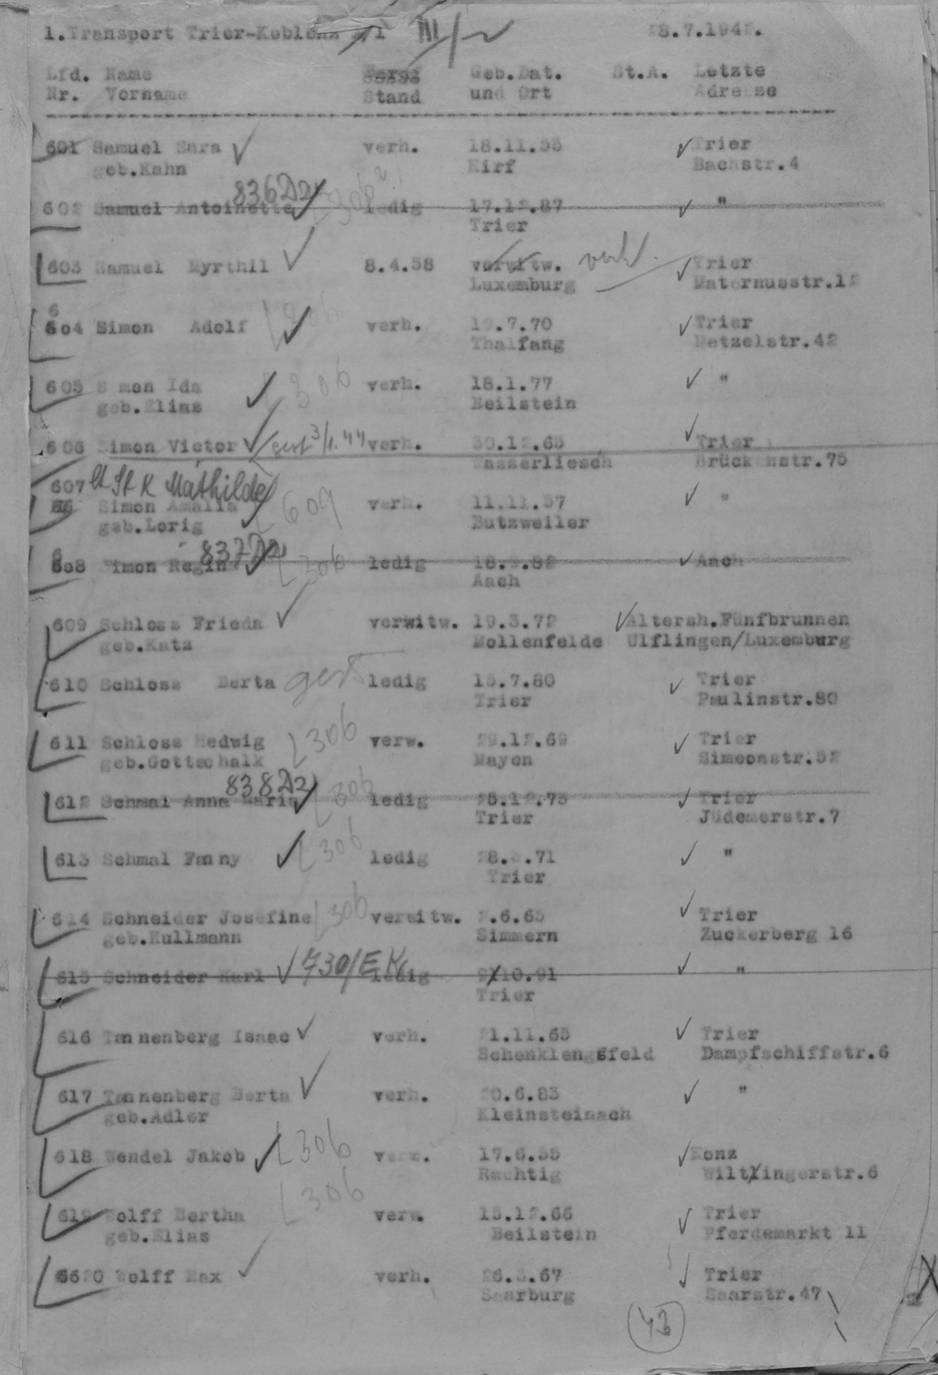 1.Transport Trier-Koblenz III/2 28.7.1942.
Lfd. Name Geb.Dat. St.A. Letzte
Nr. Vorname Stand und Ort Adresse
601 Samuel Sara verh. 18.11. Trier
geb.Kahn Kirf Bachstr.4
836D2 306
602 Samuel Antoinette ledig 17.12.87 "
Trier
603 Samuel Myrthil 8.4.58 verwitw. verh. Trier
Luxemburg Maternusstr.12
6
604 Simon Adolf 306 verh. 19.7.70 Trier
Thalfang Metzelstr.42
605 Simon Ida 306 verh. 18.1.77 "
geb.Elias Beilstein
606 Simon Victor gest 3/1.44 verh. 30.12.65 Trier
Wasserliesch Brückenstr.75
607 Lt St K Mathilde
Simon Amalia 609 verh. 11.11.57 "
geb.Lorig Butzweiler
6 837D2
608 Simon Regin 306 ledig 18.9.82 Aach
Aach
609 Schloss Frieda verwitw. 19.3.72 Altersh.Fünfbrunnen
geb.Katz Mollenfelde Ulflingen/Luxemburg
610 Schloss Berta gest ledig 15.7.80 Trier
Trier Paulinstr.80
611 Schloss Hedwig L306 verw. 29.12.69 Trier
geb.Gottschalk Mayen Simeonstr.52
838D2
612 Schmal Anna Maria L306 ledig 25.12.73 Trier
Trier Judemerstr.7
613 Schmal Fanny L306 ledig 28. .71 "
Trier
614 Schneider Josefine L306 verwitw. .6.65 Trier
geb.Kullmann Simmern Zuckerberg 16
615 Schneider Karl 730/EK ledig 9/10.91 "
Trier
616 Tannenberg Isaac verh. 21.11.65 Trier
Schenklengsfeld Dampfschiffstr.6
617 Tannenberg Berta verh. 20.6.83 "
geb.Adler Kleinsteinach
618 Wendel Jakob L306 verw. 17.6.55 Konz
Rachtig Wiltlingerstr.6
L306
619 Wolff Bertha verw. 15.12.66 Trier
geb.Elias Beilstein Pferdemarkt 11
6620 Wolff Max verh. 26.3.67 Trier
Saarburg Saarstr.47
43